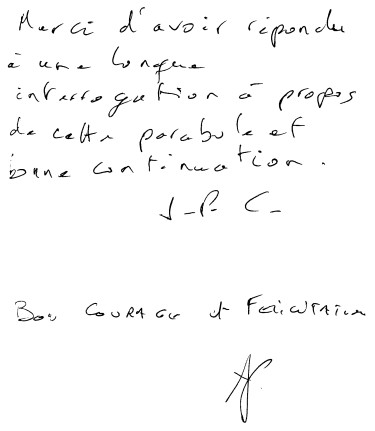 Merci d'avoir répondu
à une longue
interrogation à propos
de cette parabole et
bonne continuation.
J-P. C-
Bon COURAGE et FELICITATION